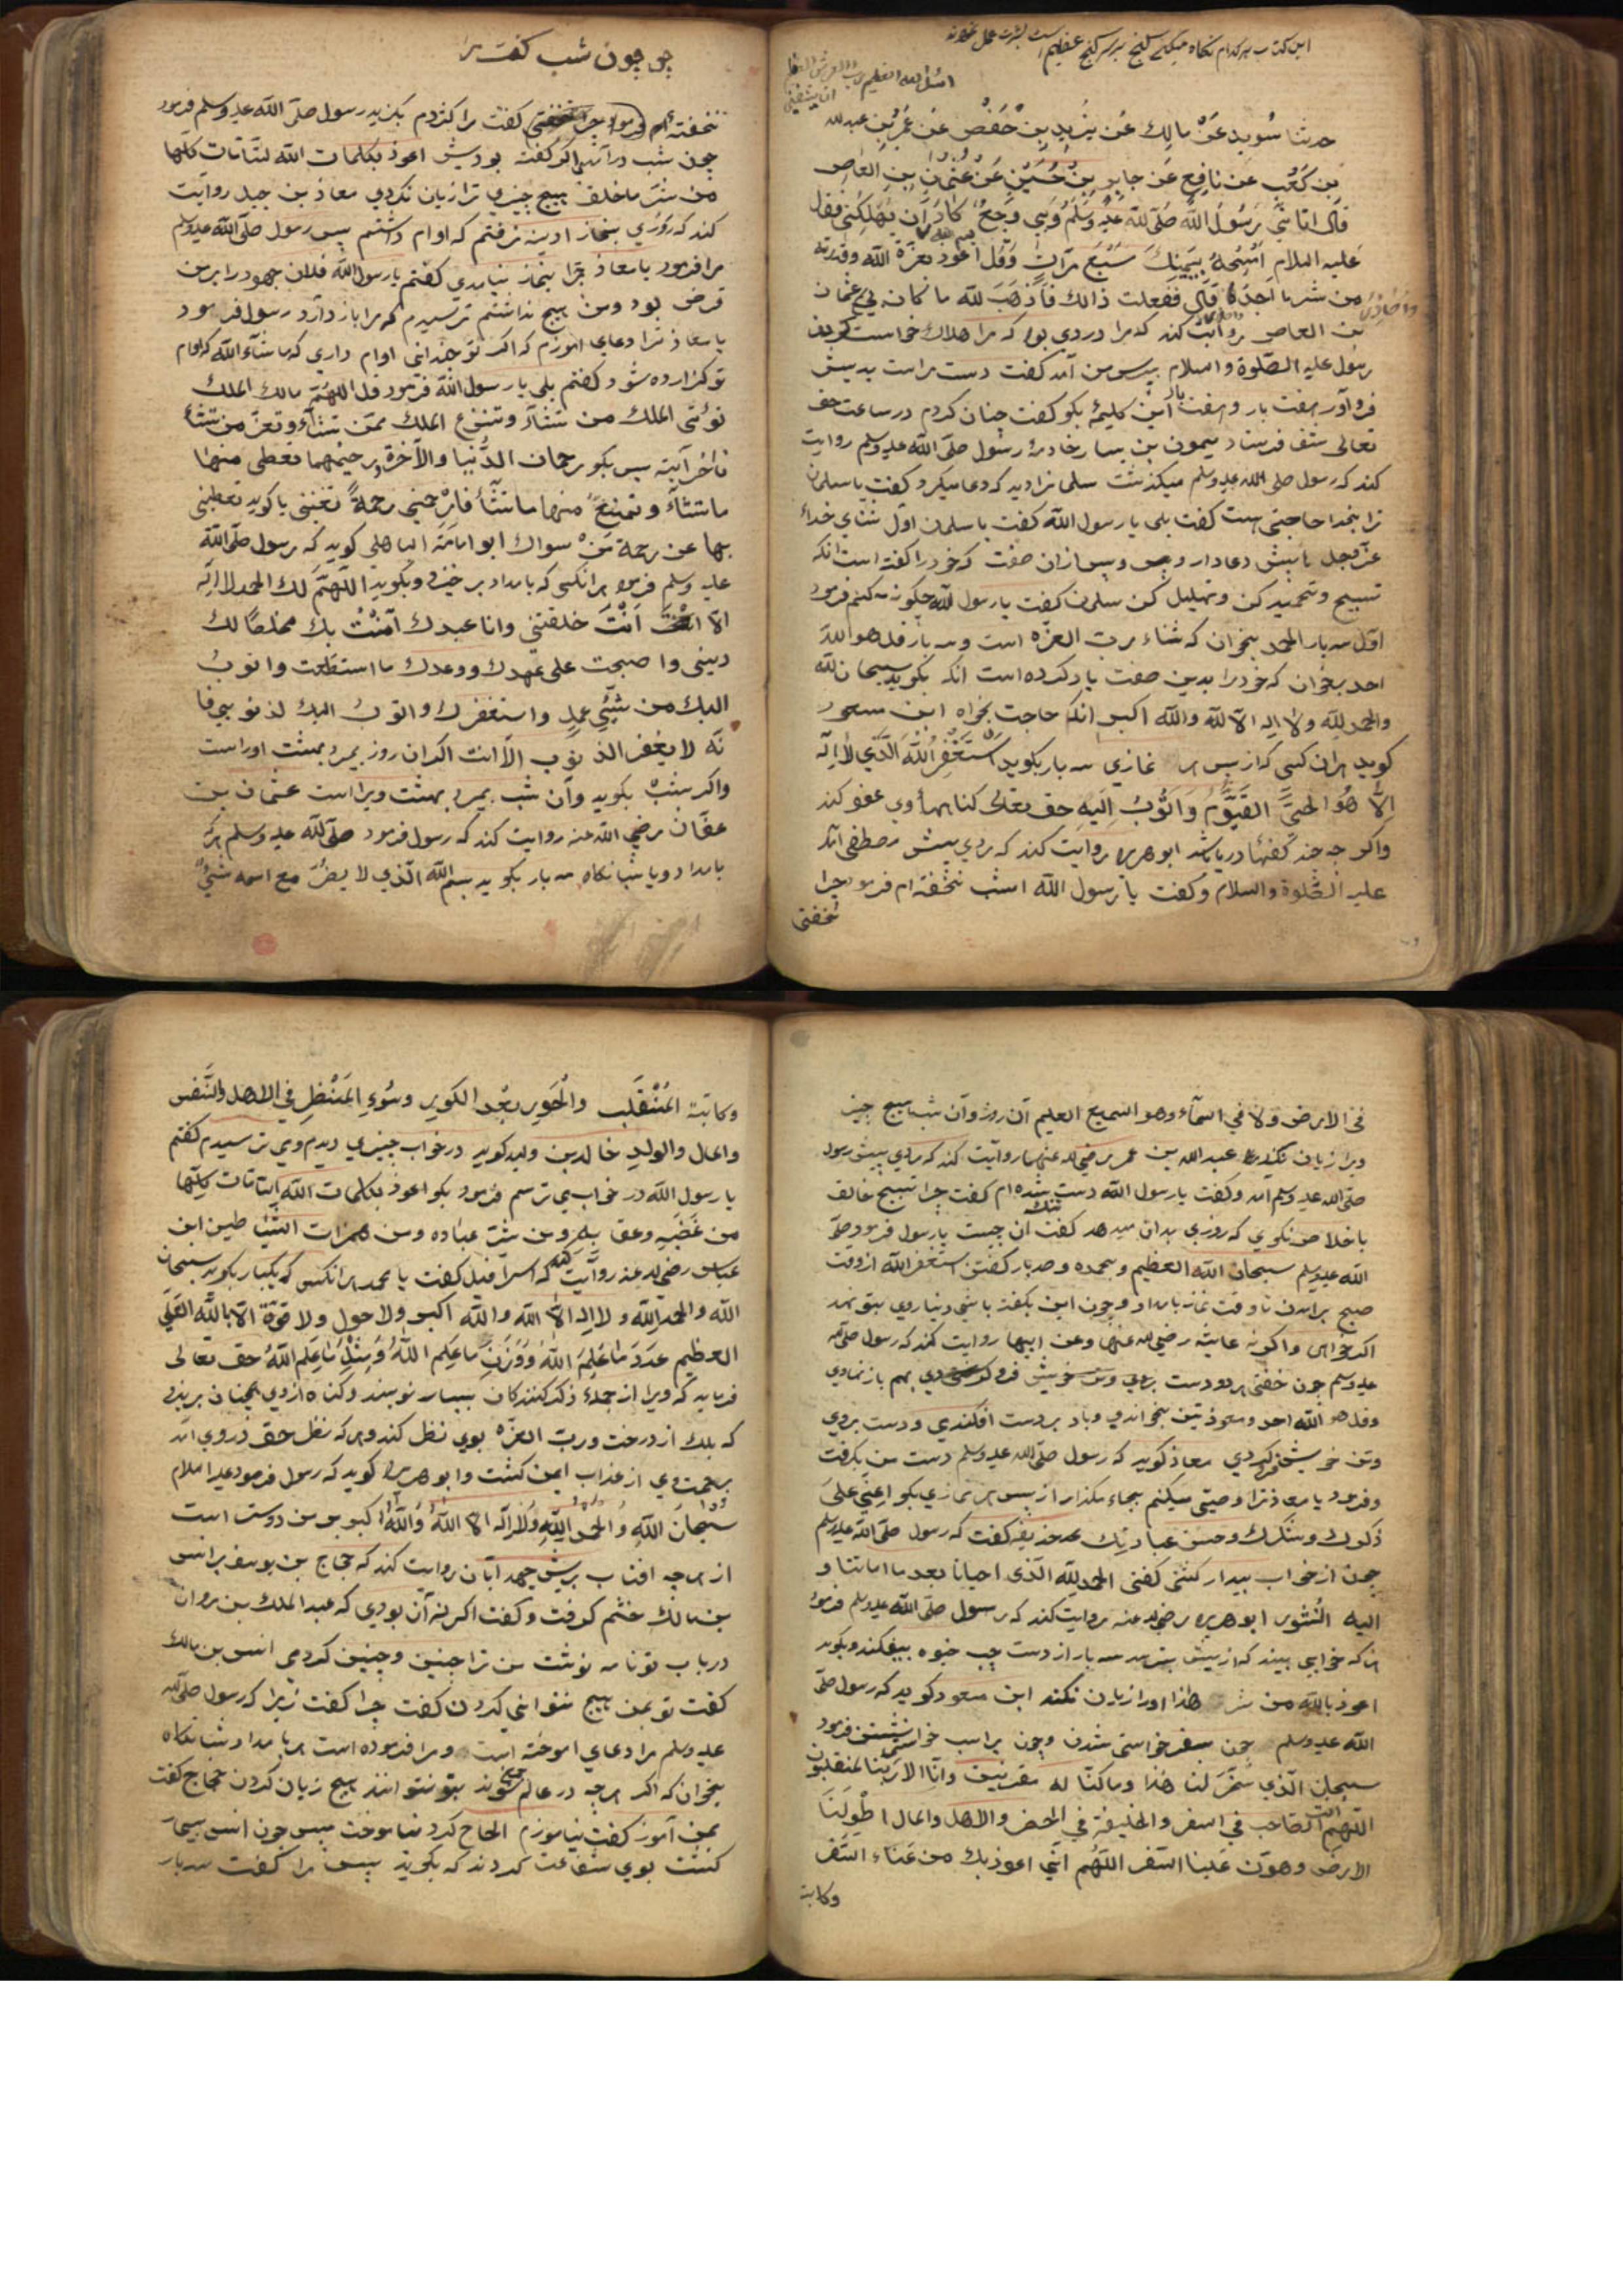 این کتاب هر کدام نکاه میکنی کنج بر سر کنج عظیم است
اسئل الله العظیم رب العرش العظیم
ان یشفینی
حدثنا سُوید عَنْ مالِك عَن یزید بِن حُفَصْ عَن عُمَرُ بِن عبدالله
بِن کَعْبِ عن نافِعِ عَن جابِرِ بِنْ حُسَیْنِ عَنْ عُثمان بِنِ العاص
قال اتانی رَسُولُ اللهُ صَلی لله علیه وَسَلَّمُ وَبِی وَجَعٌ کادَ اَن یُهْلِکُنی فقال
عَلیه السلام اَمْسِحْهُ بِیَمِینِكَ سَبْعَ مَرّاتٍ وَقُل اَعُوذ بعزّة الله وقدرته
من شر ما اجدُ قَالَ ففعلت ذالك فَاَذهَبَ لله ما کانه بی عثمان
بن العاص روایت کند که مرا دردی بود که مرا هلاك خواست کردن
رسول علیه الصّلوة والسلام بپرس من آمد کفت دست راست بدیش
فرو آور هفت بار و هفت بار این کلیمهٔ بکو کفت چنان کردم در ساعت حق
تعالی شفا فرستاد میمون بن یسار خادمهٔ رسول صلّی الله علیه وسلم روایت
کند که رسول صلی الله علیه وسلم میکذشت سلمانرا دید که دعا میکرد کفت یا سلمان
ترا بخدا حاجتی هست کفت بلی یا رسول الله کفت یا سلمان اوّل ثنای خدای
عزّ وجل با پیش دعا دار و پس از آن صفت که خود را کفته است آنکه
تسبیح و تحمید کن و تهلیل کن سلمان کفت یا رسول الله چکونه ثنا کنم فرمود
اوّل سه بار الحمد بخوان که ثناء رب العزّه است و سه بار قل هو الله
احد بخوان که خود را بدین صفت یاد کرده است آنکه بکوید سبحان الله
والحمد لله ولا اله الا لله والله اکبر آنکه حاجت بخواه ابن مسعود
کوید هران کسی که از پس هر نمازی سه بار بکوید اَسْتَغْفِرُ اللّٰهَ الَّذِی لاٰ اِلٰهَ
اِلاّٰ هُوَ الحیُّ القَیُّومُ وَاَتُوبُ اِلَیهِ حق تعالی کناهها وی عفو کند
واکر چه چند کفهٔ دریا باشد ابو هریره روایت کند که مردی پیش مصطفی آمد
علیه الصّلوة والسلام وکفت یا رسول الله امشب نخفته ام فرمود چرا
نخفتی
چو چون شب کفت مرا
نخفته ام فرمود چرا نخفتی کفت مرا کژدم بکزید رسول صلّی الله علیه وسلم فرمود
چون شب در آمد اکر کفته بودیش اعوذ بکلمات الله التامات کلّها
من شَرّ ما خلق هیچ چیزی ترا زیان نکردی معاذ بن جبل روایت
کند که روزی بنماز ادینه نرفتم که اوام داشتم پس رسول صلّی الله علیه وسلم
مرا فرمود یا معاذ چرا بنماز نیامدی کفتم یا رسول الله فلان جهود را بر من
قرض بود ومن هیچ نداشتم ترسیدم که مرا باز دارد رسول فرمود
یا معاذ ترا دعای آموزم که اکر تو بخوانی اوام داری که ما شاء الله که اوام
تو کزارده شود کفتم بلی یا رسول الله فرمود قل اللهُمّ مالك الملك
تؤتی الملك من تشاء وتنزع الملك ممن تشاء وتعزّ من تشاء
تا آخر آیة پس بکو رحمان الدُّنیا والآخرة و رحیمهما تعطی منها
ما تشاء و تمنع منها ما تشاء فارْحمنی رحمةً تغننی یا کوید تعطینی
بها عن رحمة من سواك ابو امامة الباهلی کوید که رسول صلّی الله
علیه وسلم فرمود هرانکسی که بامداد بر خیزد وبکوید اللهُمّ لك الحمد لا اله
الا انت اَنْتَ خلقتنی وانا عبدك آمَنْتُ بك مخلصًا لك
دینی واصبحت علی عَهدك ووعدك ما استطعت واتوبُ
الیك من شیّئ عملی واستغفرك واتوبُ الیك لذنوبی فا
نّه لا یغفر الذنوب الا انت اکر ان روز بمیرد بهشت اوراست
واکر بشبْ بکوید وآن شب بمیرد بهشت ویراست عثمان بن
عفّان رضی الله عنه روایت کند که رسول فرمود صلّی لله علیه وسلم هرکه
بامداد ویا شبانکاه سه بار بکوید بسم الله الّذی لا یضُرّ مع اسمه شئٌ
فی الارض ولا فی السّماء وهو السّمیع العلیم آن روز وآن شب هیچ چیز
ویرا زیان نکند عبد الله بن عمر رضی الله عنهما روایت کند که مردی پیش رسول
صلّی الله علیه وسلم امد وکفت یا رسول الله دست تنك شده ام کفت چرا تسبیح خالق
باخلاص نکوی که روزی بدان میدهد کفت آن چیست یا رسول فرمود صلّی
الله علیه وسلم سبحان الله العظیم وبحمده وصد بار کفتن استغفر الله از وقت
صبح برآمدن تا وقت نماز بامداد وچون این بکفته باشی دنیا روی بتو نهد
اکر خواهی واکر نه عایشه رضی الله عنها وعن ابیها روایت کند که رسول صلّی الله
علیه وسلم چون خفتی هر دو دست بروی وتن خویش فرو کردی بهم باز نهادی
وقل هو الله احد ومعوذتین بخواندی وباد بر دست افکندی و دست بروی
وتن خویش فرو کردی معاذ کوید که رسول صلّی الله علیه وسلم دست من بکرفت
وفرمود یا معاذ ترا وصیّتی میکنم بجای مکذار از پس هر نمازی بکو اَعِنّی عَلی
ذکرك وشکرك وحسن عبادتِك حذیفه کفت که رسول صلّی الله علیه وسلم
چون از خواب بیدار کشتی کفتی الحمد لله الّذی احیانا بعد ما اماتنا و
الیه النُشور ابو هریره رضی الله عنه روایت کند که رسول صلّی الله علیه وسلم فرمود
هر که خوابی بیند که از پیش بترسد سه بار از دست چپ خیوه بیفکند وبکوید
اعوذ بالله من شر هذا اورا زیان نکند ابن مسعود کوید که رسول صلّی
الله علیه وسلم چون بسفر خواستی شدن وچون بر اسب خواستی نشستن فرمود
سبحان الّذی سَخّرَ لنا هٰذا وما کنّا له مقرنین وانّا الی ربّنا لمنقلبون
اللهُمّ انت الصّاحب فی السفر والخلیفة فی الحضر والاهل والمال اطْوِ لَنَا
الارض وهوّن عَلینا السّفر اللّهُم انّی اعوذ بك من عَناء السّفر
وکابة
وکآبة المُنْقَلَب والْحَوِرِ بعْد الکَوِرِ وسُوءِ المَنْظرِ فی الاهل والنَّفس
والمال والولدِ خالد بن ولید کوید در خواب چیزی دیدم ومی ترسیدم کفتم
یا رسول الله در خواب می ترسم فرمود بکو اعوذ بکلمات الله التّامّات کلّها
من غَضَبِه وعقابه ومن شرّ عباده ومن همزات الشیاطین ابن
عباس رضی الله عنه روایت کند که اسرافیل کفت یا محمد هرانکس که یکبار بکوید سبحان
الله والحمد لله ولا اله الاّ الله والله اکبر ولا حول ولا قوّة الا بالله العَلی
العظیم عدد ما عَلِمَ اللهُ ووَزنَ ما عَلِم اللهُ ومِثْلَ ما عَلِم اللهُ حق تعالی
فرماید که ویرا از جملهٔ ذکر کنندکان بسیار نویسند وکناه از وی همچنان بریزد
که برك از درخت ورب العزّه بوی نظر کند وهر که نظر حق در وی آمد
برحمت وی از عذاب ایمن کشت وابو هریره کوید که رسول فرمود علیه السلام
سُبْحانَ اللّٰهِ وَالحمدُ لِلّٰهِ وَلا اِلٰه الا اللّٰهُ وَاللّٰهُ اکبر بر من دوست است
از هرچه افتاب برش جهد ابان روایت کند که حجاج بن یوسف بر انس
بن مالك خشم کرفت وکفت اکر نه آن بودی که عبد الملك بن مروان
در باب تو نامه نوشت من ترا چنین وچنین کردمی انس بن مالك
کفت تو بمن هیچ نتوانی کردن کفت چرا کفت زیرا که رسول صلّی الله
علیه وسلم مرا دعای اموخته است ومرا فرموده است هر بامداد وشبانکاه
بخوان که اکر هرچه در عالم جمع شوند بتو نتوانند هیچ زیان کردن حجاج کفت
بمن آموز کفت نیاموزم الحاح کرد نیاموخت پس چون انس بیمار
کشت بوی شفاعت کردند که بکوید پس مرا کفت سه بار